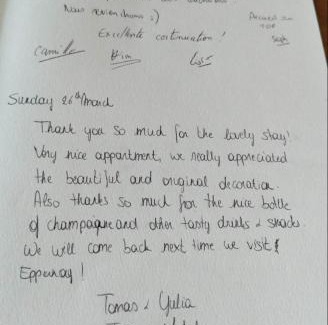 Nous reviendrons :)
Excellente continuation !
Camille
Sunday 26th March
Thank you so much for the lovely stay!
Very nice appartment, we really appreciated
the beautiful and original decoration.
Also thanks so much for the nice bottle
of champaigne and other tasty drinks & snacks.
We will come back next time we visit
Eppernay !
Tomas & Yulia